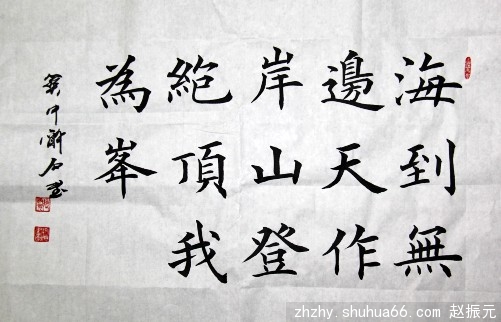 海到無
邊天作
岸山登
絶頂我
為峯
zhzhy.shuhua66.com 赵振元